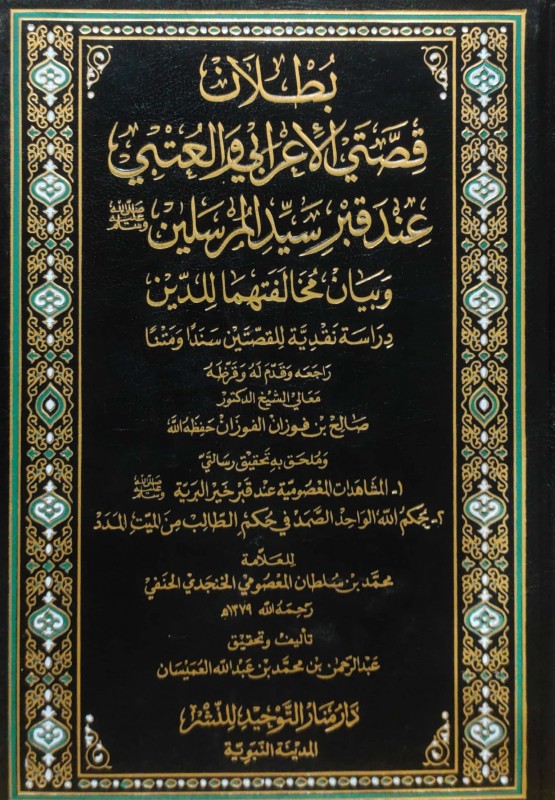 بُطْلَان
قِصَّتَي الأَعْرَابِي وَالعُتْبِي
عِنْدَ قَبْرِ سَيِّدِ المُرْسَلِين ﷺ
وَبَيَانُ مُخَالَفَتِهِمَا لِلدِّين
دِرَاسَة نَقْدِيَّة لِلقِصَّتَيْن سَنَدًا وَمَتْنًا
رَاجَعَه وَقَدَّمَ لَهُ وَقَرَّظَهُ
مَعَالِي الشَّيْخ الدكتور
صَالِح بْن فَوْزَان الفَوْزَان حَفِظَهُ اللَّهُ
وَمُلحَق بِهِ تَحْقِيق رِسَالَتَيْ
١- المشَاهَدَات المَعْصُومِيَّة عِنْدَ قَبْر خَيْر البَرِيَّة ﷺ
٢- حُكمُ اللَّه الوَاحِدِ الصَّمَد فِي حُكم الطَّالِب مِنَ المَيِّتِ المَدَد
لِلعَلَّامَة
محمَّد بْن سُلطَان المَعْصُومِي الخُجَندِي الحَنَفِي
رَحِمَهُ اللَّه ١٣٧٩هـ
تَأليف وَتَحقِيق
عَبْد الرَّحْمَن بن محمَّد بْن عَبْد اللَّه العُمَيسَان
دَار مَنَار التَّوْحِيد لِلنَّشْر
المَدِينَة النَّبَوِيَّة